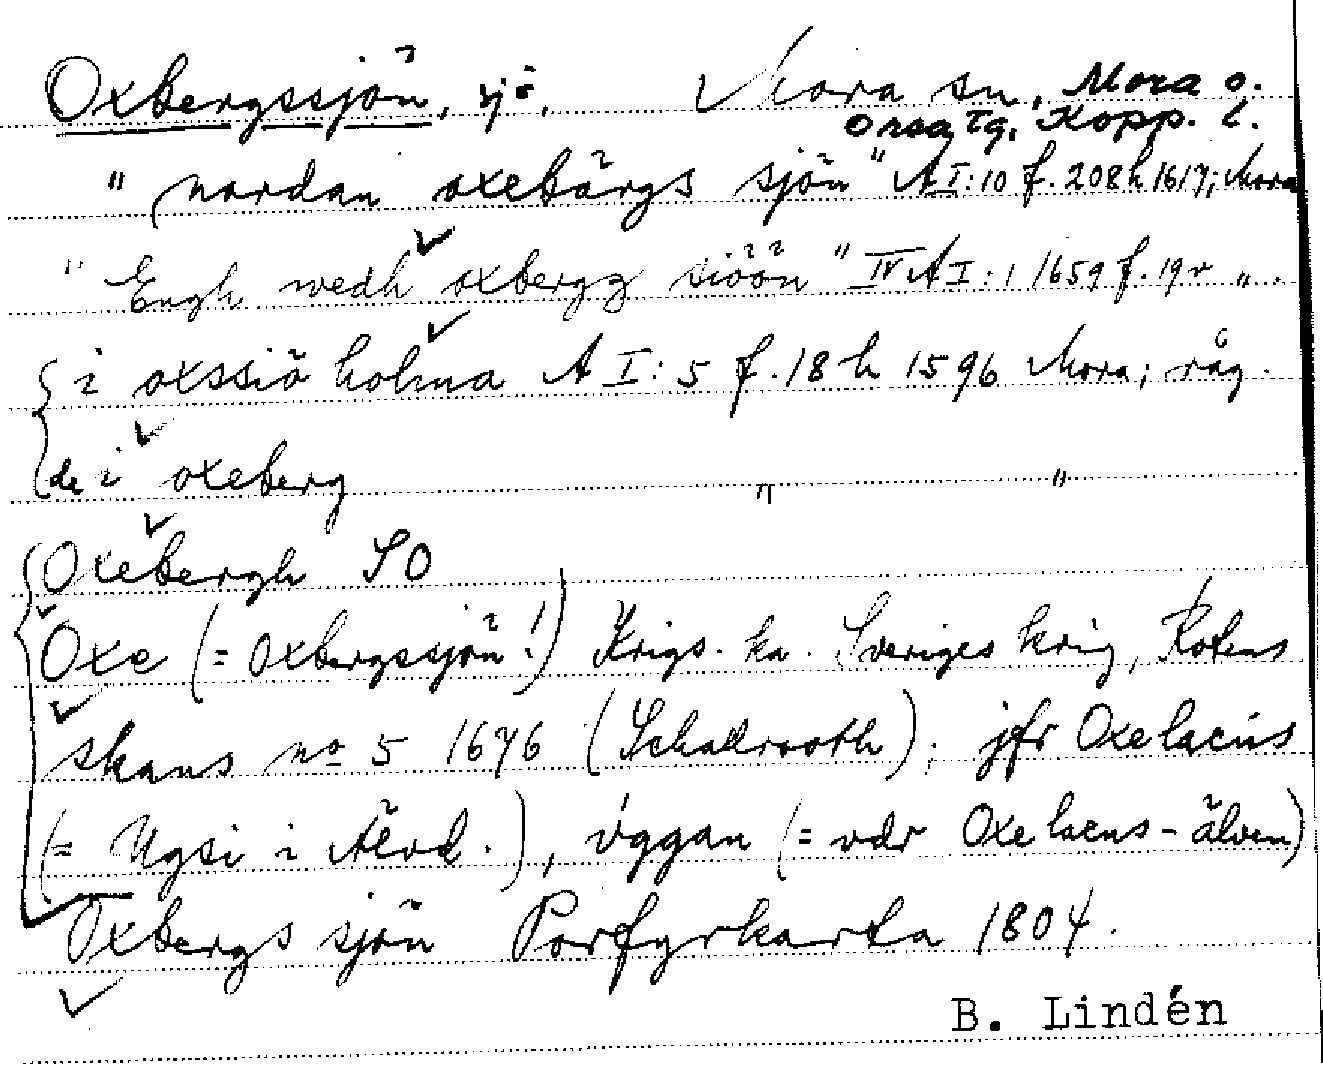 Oxbergssjön, sjö. Mora sn, Mora o.
Orsa tg, Kopp. l.
" nordan oxebärgs sjön" A I:10 f. 208h 1617; Mora
" Engh wedh oxbergz siöön" IV A I:1 1659 f. 19v " .
i oxssiö holma A I:5 f. 18 h 1596 Mora; råg.
de i oxeberg " "
Oxebergh SO
Oxe (= Oxbergssjön!) Krigs. ka. Sveriges krig, Kotens
skans no 5 1676 (Schakrooth); jfr Oxelacus
(= Ugsi i Älvd.), Vggan (= vdr Oxelacus-älven)
Oxbergs sjön Porfyrkarta 1804.
B. Lindén